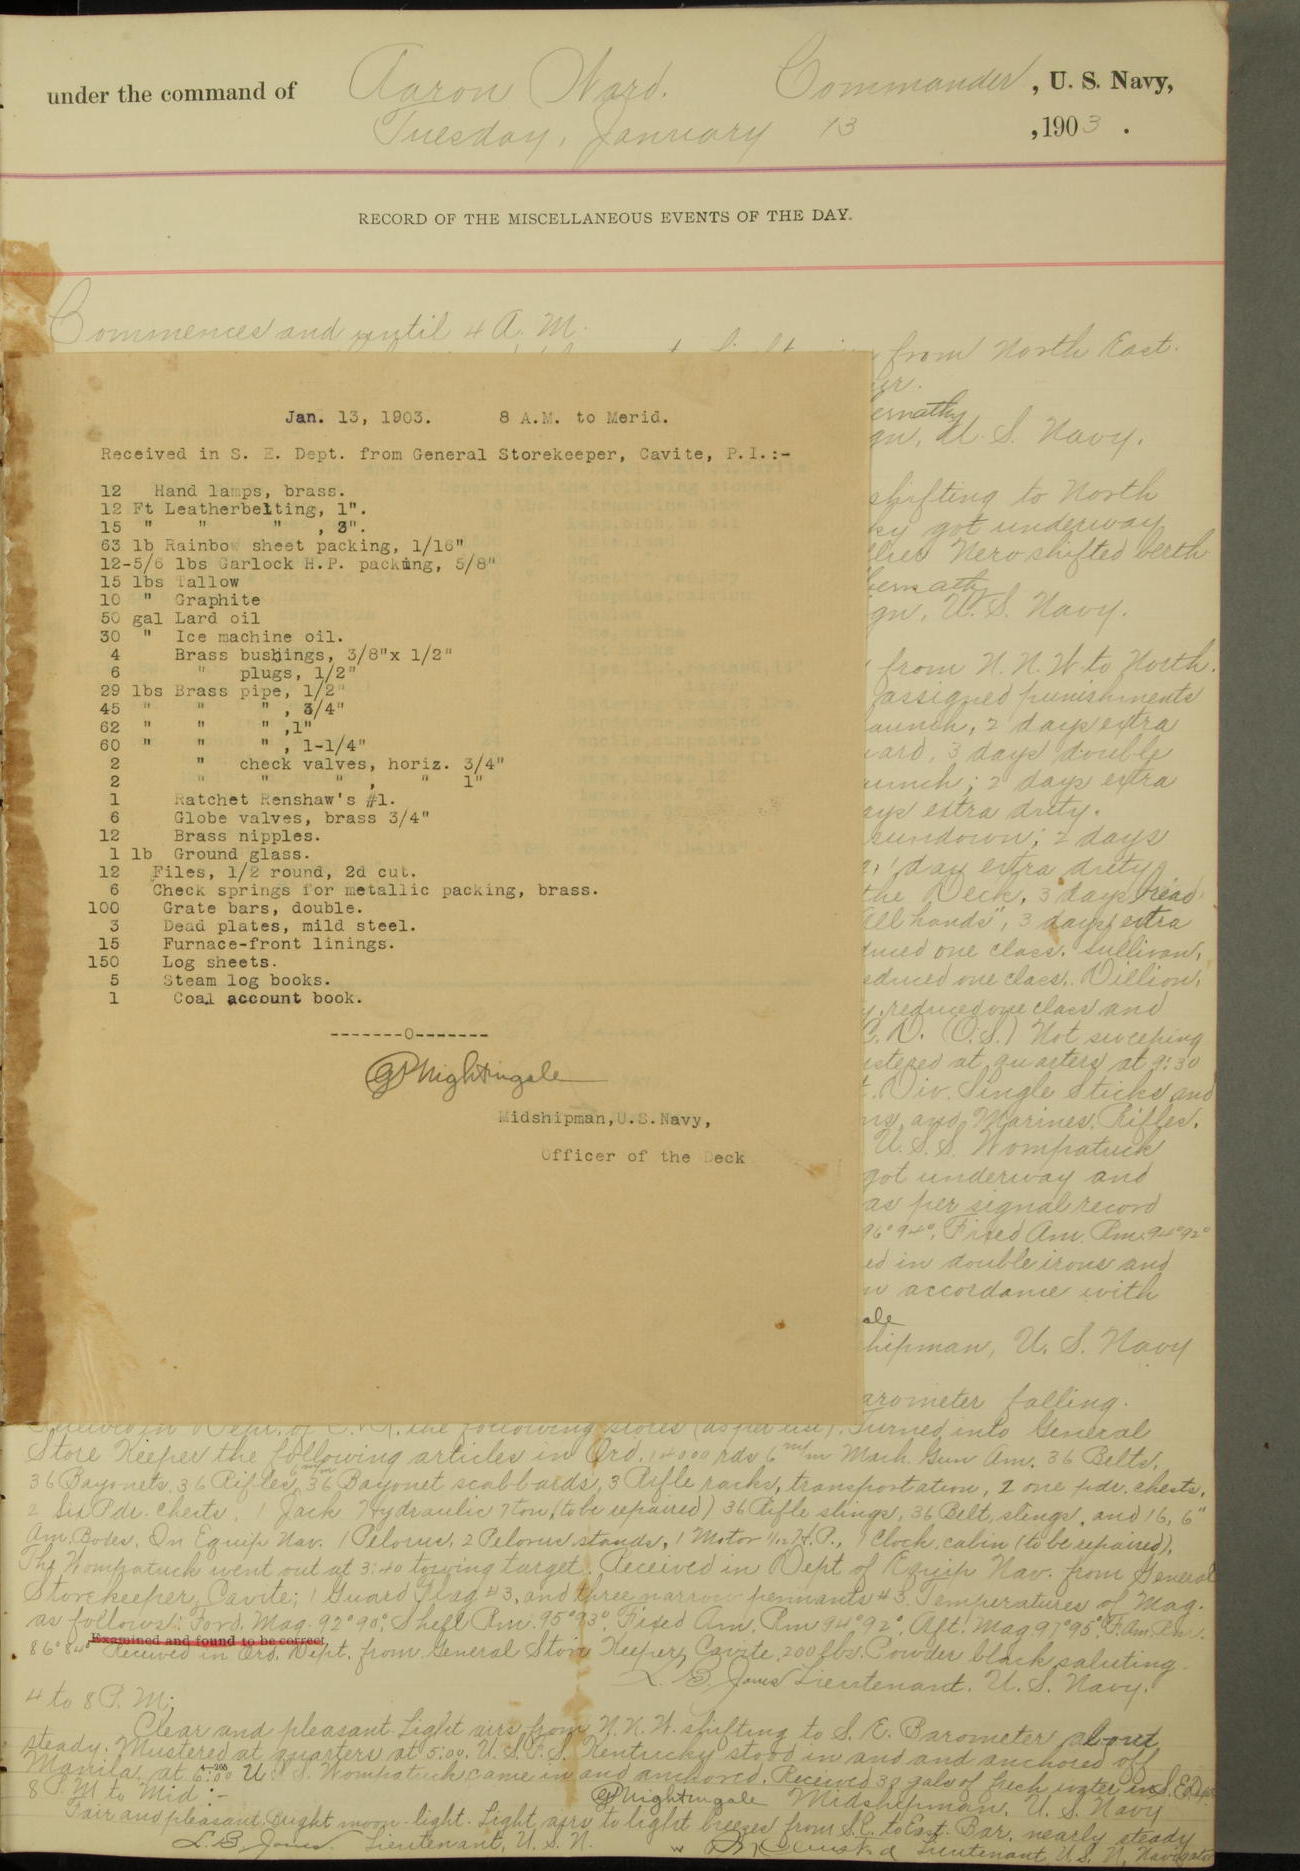 under the command of Aaron Ward. Commander, U. S. Navy,
Tuesday, January 13, 1903.
RECORD OF THE MISCELLANEOUS EVENTS OF THE DAY.
Commences and until 4 A. M.
from North East.
gn, U. S. Navy.
shifting to North
got underway
Nero shifted berth
gn, U. S. Navy.
from N. N. W. to North.
assigned punishments
aunch, 2 days extra
ward, 3 days double
aunch; 2 days extra
ays extra duty.
sundown; 2 days
1 day extra duty
the Deck, 3 days
all hands", 3 days extra
duced one class. Sullivan,
educed one class. Dillion,
reduced one class and
(O.S.) Not sweeping
stered at quarters at 9:30
Div. Single Sticks and
and Marines. Rifles.
U. S. S. Wompatuck
got underway and
as per signal record
96° 94°. Fixed Am. Rm. 94° 92°
ed in double irons and
in accordance with
ale
hipman, U. S. Navy
Jan. 13, 1903. 8 A.M. to Merid.
Received in S. E. Dept. from General Storekeeper, Cavite, P.I.:-
12 Hand lamps, brass.
12 Ft Leatherbelting, 1".
15 " " " , 3".
63 lb Rainbow sheet packing, 1/16"
12-5/6 lbs Garlock H.P. packing, 5/8"
15 lbs Tallow
10 " Graphite
50 gal Lard oil
30 " Ice machine oil.
4 Brass bushings, 3/8"x 1/2"
6 " plugs, 1/2"
29 lbs Brass pipe, 1/2"
45 " " " , 3/4"
62 " " " ,1"
60 " " " , 1-1/4"
2 " check valves, horiz. 3/4"
2 " " " , " 1"
1 Ratchet Renshaw's #1.
6 Globe valves, brass 3/4"
12 Brass nipples.
1 lb Ground glass.
12 Files, 1/2 round, 2d cut.
6 Check springs for metallic packing, brass.
100 Grate bars, double.
3 Dead plates, mild steel.
15 Furnace-front linings.
150 Log sheets.
5 Steam log books.
1 Coal account book.
-------O-------
GPNightingale
Midshipman,U.S.Navy,
Officer of the Deck
arometer falling.
Dept. of C. & R. the following stores (as per list). Turned into General
Store Keeper the following articles in Ord. 14000 rds 6 m/m Mach. Gun Am. 36 Belts,
36 Bayonets, 36 Rifles, 36 Bayonet scabbards, 3 Rifle racks, transportation, 2 one pdr. chests,
2 Six Pdr. chests, 1 Jack Hydraulic 7 ton, (to be repaired) 36 Rifle slings, 36 Belt, slings, and 16, 6"
Am. Boxes. In Equip Nav. 1 Pelorus, 2 Pelorus stands, 1 Motor 1/12 H.P., 1 Clock, cabin (to be repaired),
The Wompatuck went out at 3:40 towing target. Received in Dept of Equip Nav. from General
Storekeeper, Cavite; 1 Guard flag #3, and three narrow pennants #3. Temperatures of Mag.
as follows: Ford. Mag. 92° 90°, Shell Rm. 95° 93°, Fixed Am. Rm 94° 92°, Aft. Mag. 97° 95°, F. Am. Rm.
86° 84° Examined and found to be correct,
Received in Ord. Dept. from General Store Keeper, Cavite, 200 lbs. Powder black saluting.
L. B. Jones Lieutenant, U. S. Navy.
4 to 8 P. M:
Clear and pleasant. Light airs from N. N. W. shifting to S. E. Barometer about
steady. Mustered at quarters at 5:00. U. S. F. S. Kentucky stood in and and anchored off
Manila. at 6:00 U. S. S. Wompatuck came in and anchored. Received 33 gals of fresh water in S. E. Dept
GPNightingale Midshipman, U. S. Navy
8 P. M to Mid:-
Fair and pleasant. Bright moon-light. Light airs to light breezes from S. E. to East. Bar. nearly steady
L. B. Jones. Lieutenant, U. S. N.
Lieutenant U. S. N. Navigator